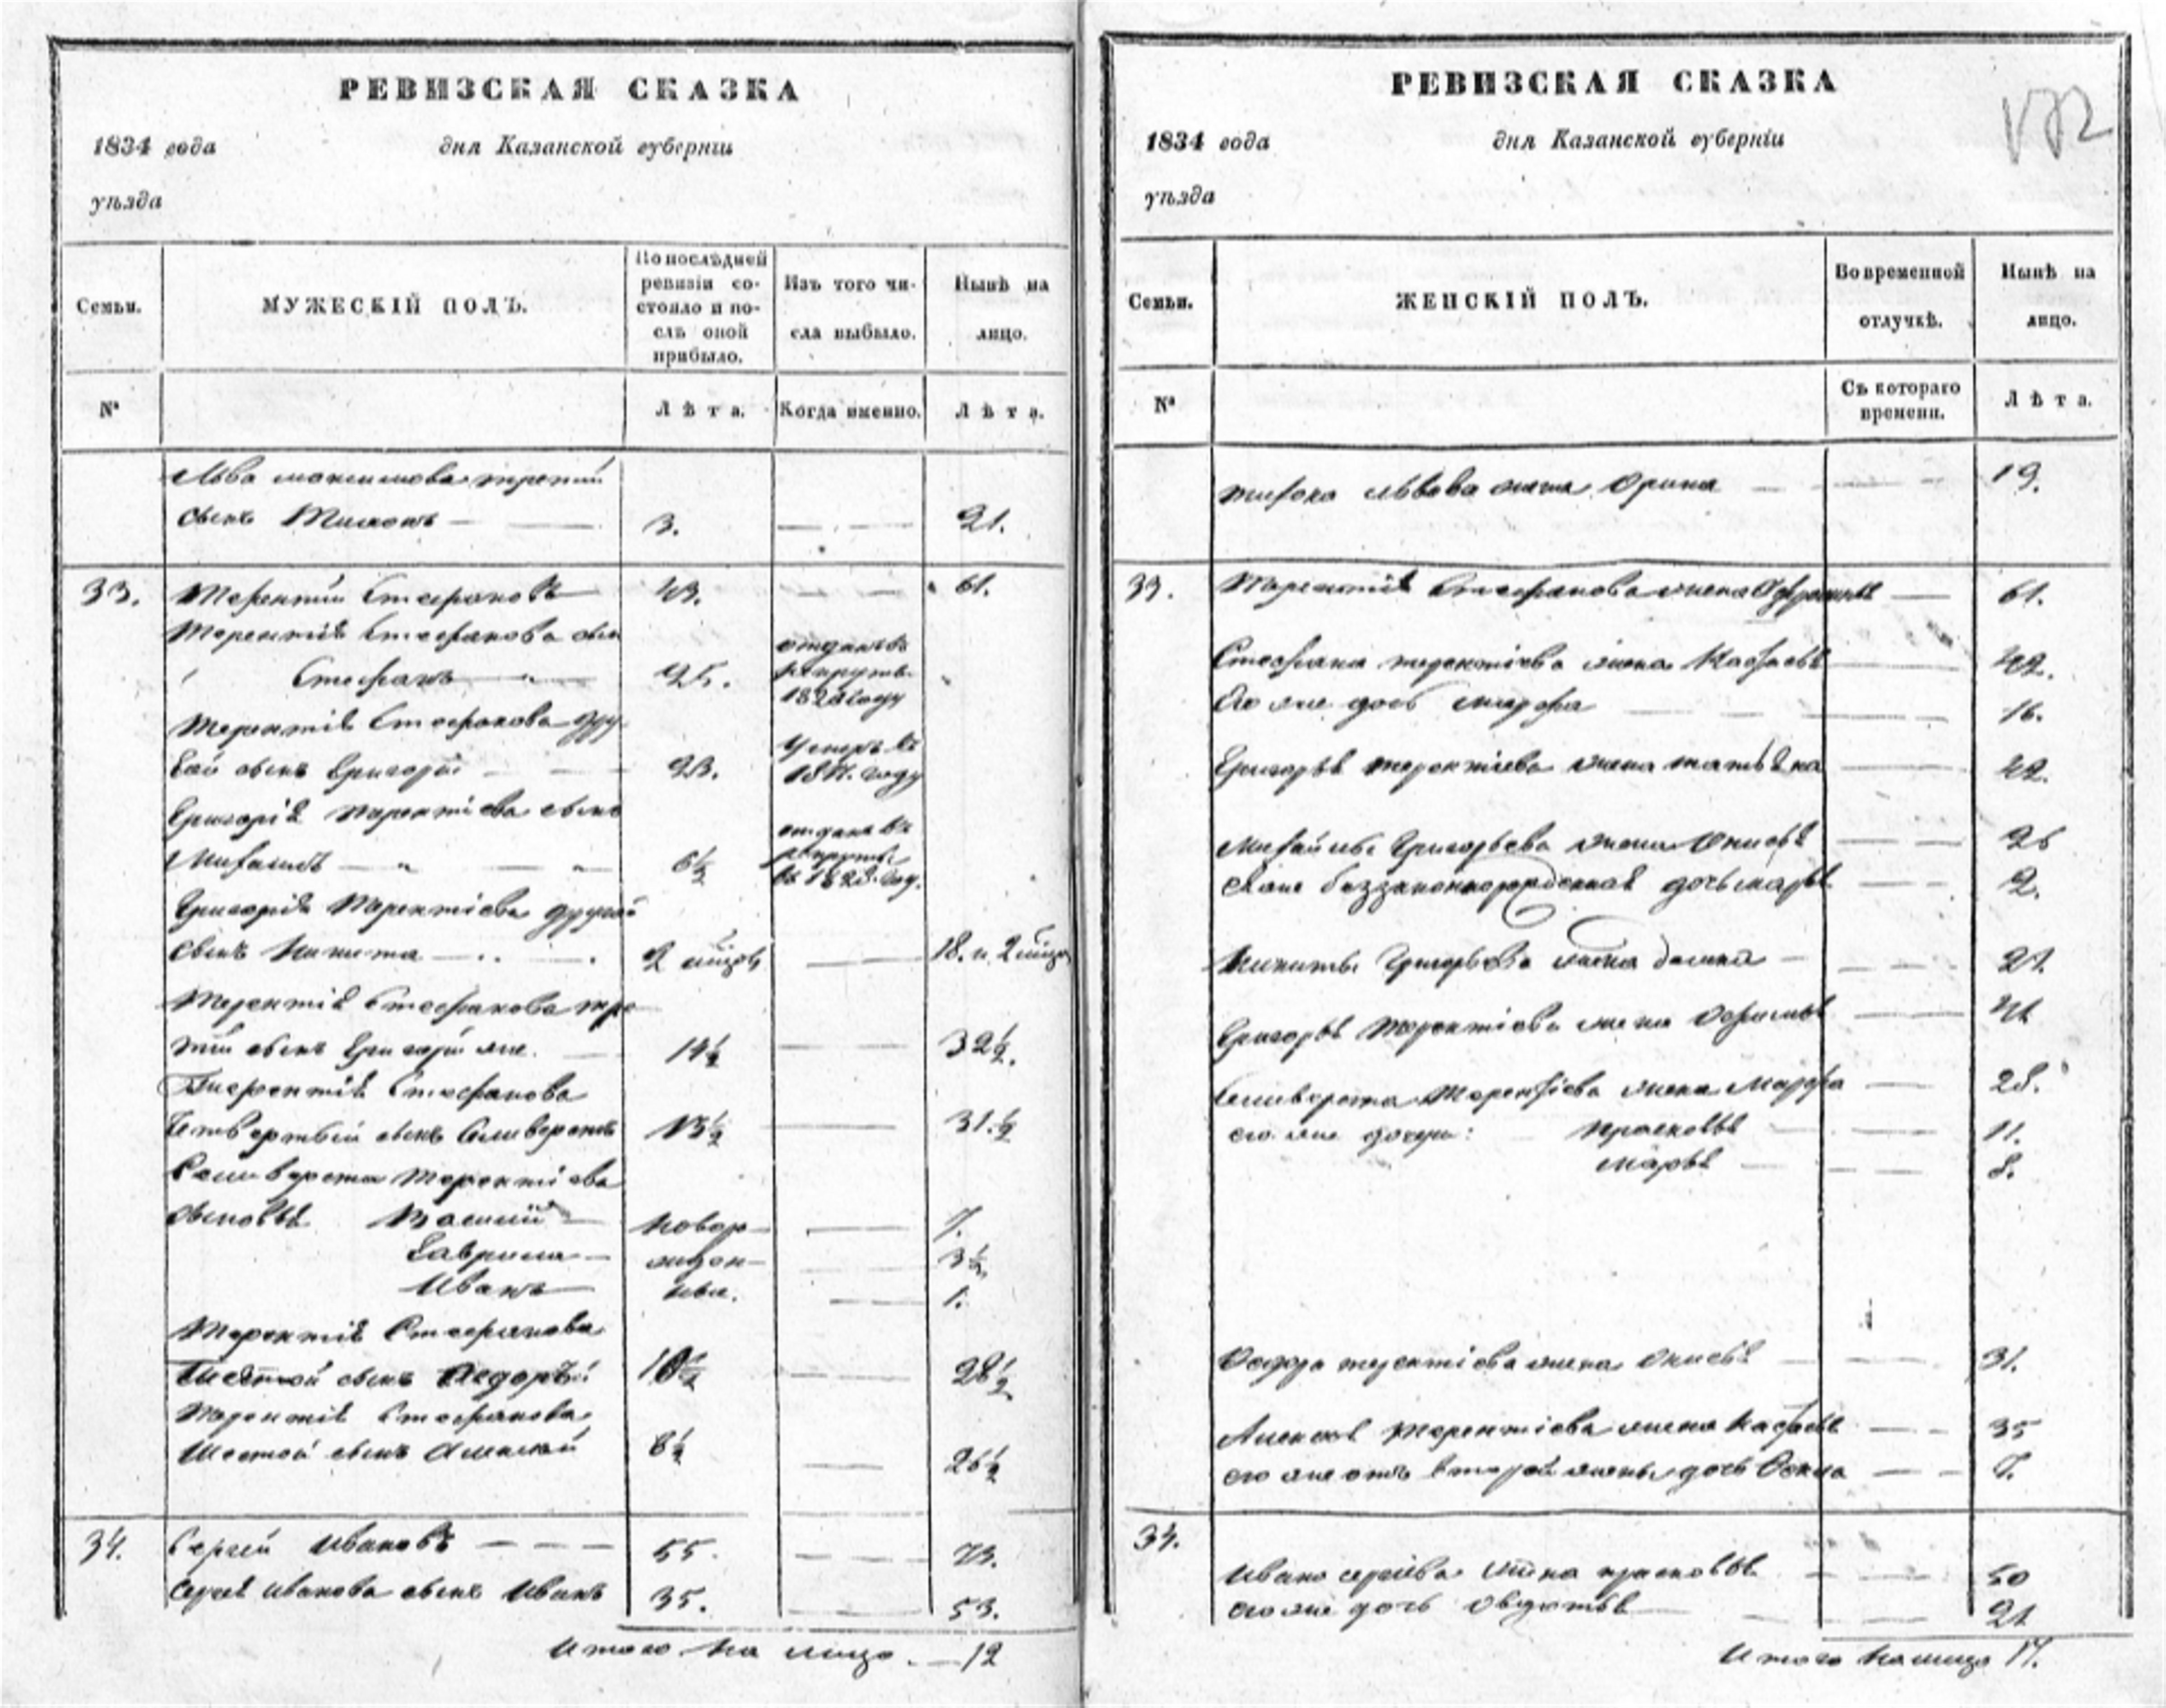 РЕВИЗСКАЯ СКАЗКА
1834 года дня Казанской губерніи
уѣзда
Семьи.
МУЖЕСКІЙ ПОЛЪ.
По послѣдней ревизіи состояло и послѣ оной прибыло.
Изъ того числа выбыло.
Нынѣ на лицо.
№
Лѣта.
Когда именно.
Лѣта.
Льва максимова третій
сынъ Тихонъ 3. 21.
33. Терентій Стефановъ 43. 61.
Терентія Стефанова сын
Стефанъ 25. отданъ въ рекруты 182 году
Терентія Стефанова дру
гой сынъ Григорій 23. Умеръ въ году
Григорія Терентіева сынъ
Михаилъ 6½ отданъ въ рекруты въ 1828 году.
Григорія Терентіева другой
сынъ Никита 2 мѣсяц 18. и 2 мѣсяц
Терентія Стефанова тре
тій сынъ Григорій же. 14½ 32½.
Терентія Стефанова
Четвертый сынъ Селиверстъ 13½ 31.½
Селиверста Терентіева
сыновья Василій новоро 7.
Гаврила жден 3½
Иванъ ные. 1.
Терентія Стефанова
Пятой сынъ Федоръ 10½ 28½
Терентія Стефанова
Шестой сынъ Алексѣй 8½ 26½
34. Сергей Ивановъ 55. 73.
Сергея Иванова сынъ Иванъ 35. 53.
Итого на лицо. 12
РЕВИЗСКАЯ СКАЗКА
172
1834 года дня Казанской губерніи
уѣзда
Семьи.
ЖЕНСКІЙ ПОЛЪ.
Во временной отлучкѣ.
Нынѣ на лицо.
№
Съ котораго времени.
Лѣта.
Тихона Львова жена Орина 19.
33. Терентія Стефанова жена 61.
Стефана терентіева жена Настасья 42.
Его же дочь марфа 16.
Григорья терентіева жена татьяна 42.
Михайлы Григорьева жена Анисья 26
Ея же беззаконнорожденная дочь марья 2.
Никиты Григорьева жена 21.
Григорья Терентіева жена Офимья 41
Селиверста Терентіева жена Марфа 28.
его же дочери: прасковья 11.
марья 8.
Федора терентіева жена Анисья 31.
Алексея Терентіева жена Настасья 35
его же отъ второй жены дочь Фекла 7.
34.
Ивана сергіева жена прасковья 50
его же дочь Овдотья 21
Итого на лицо 17.